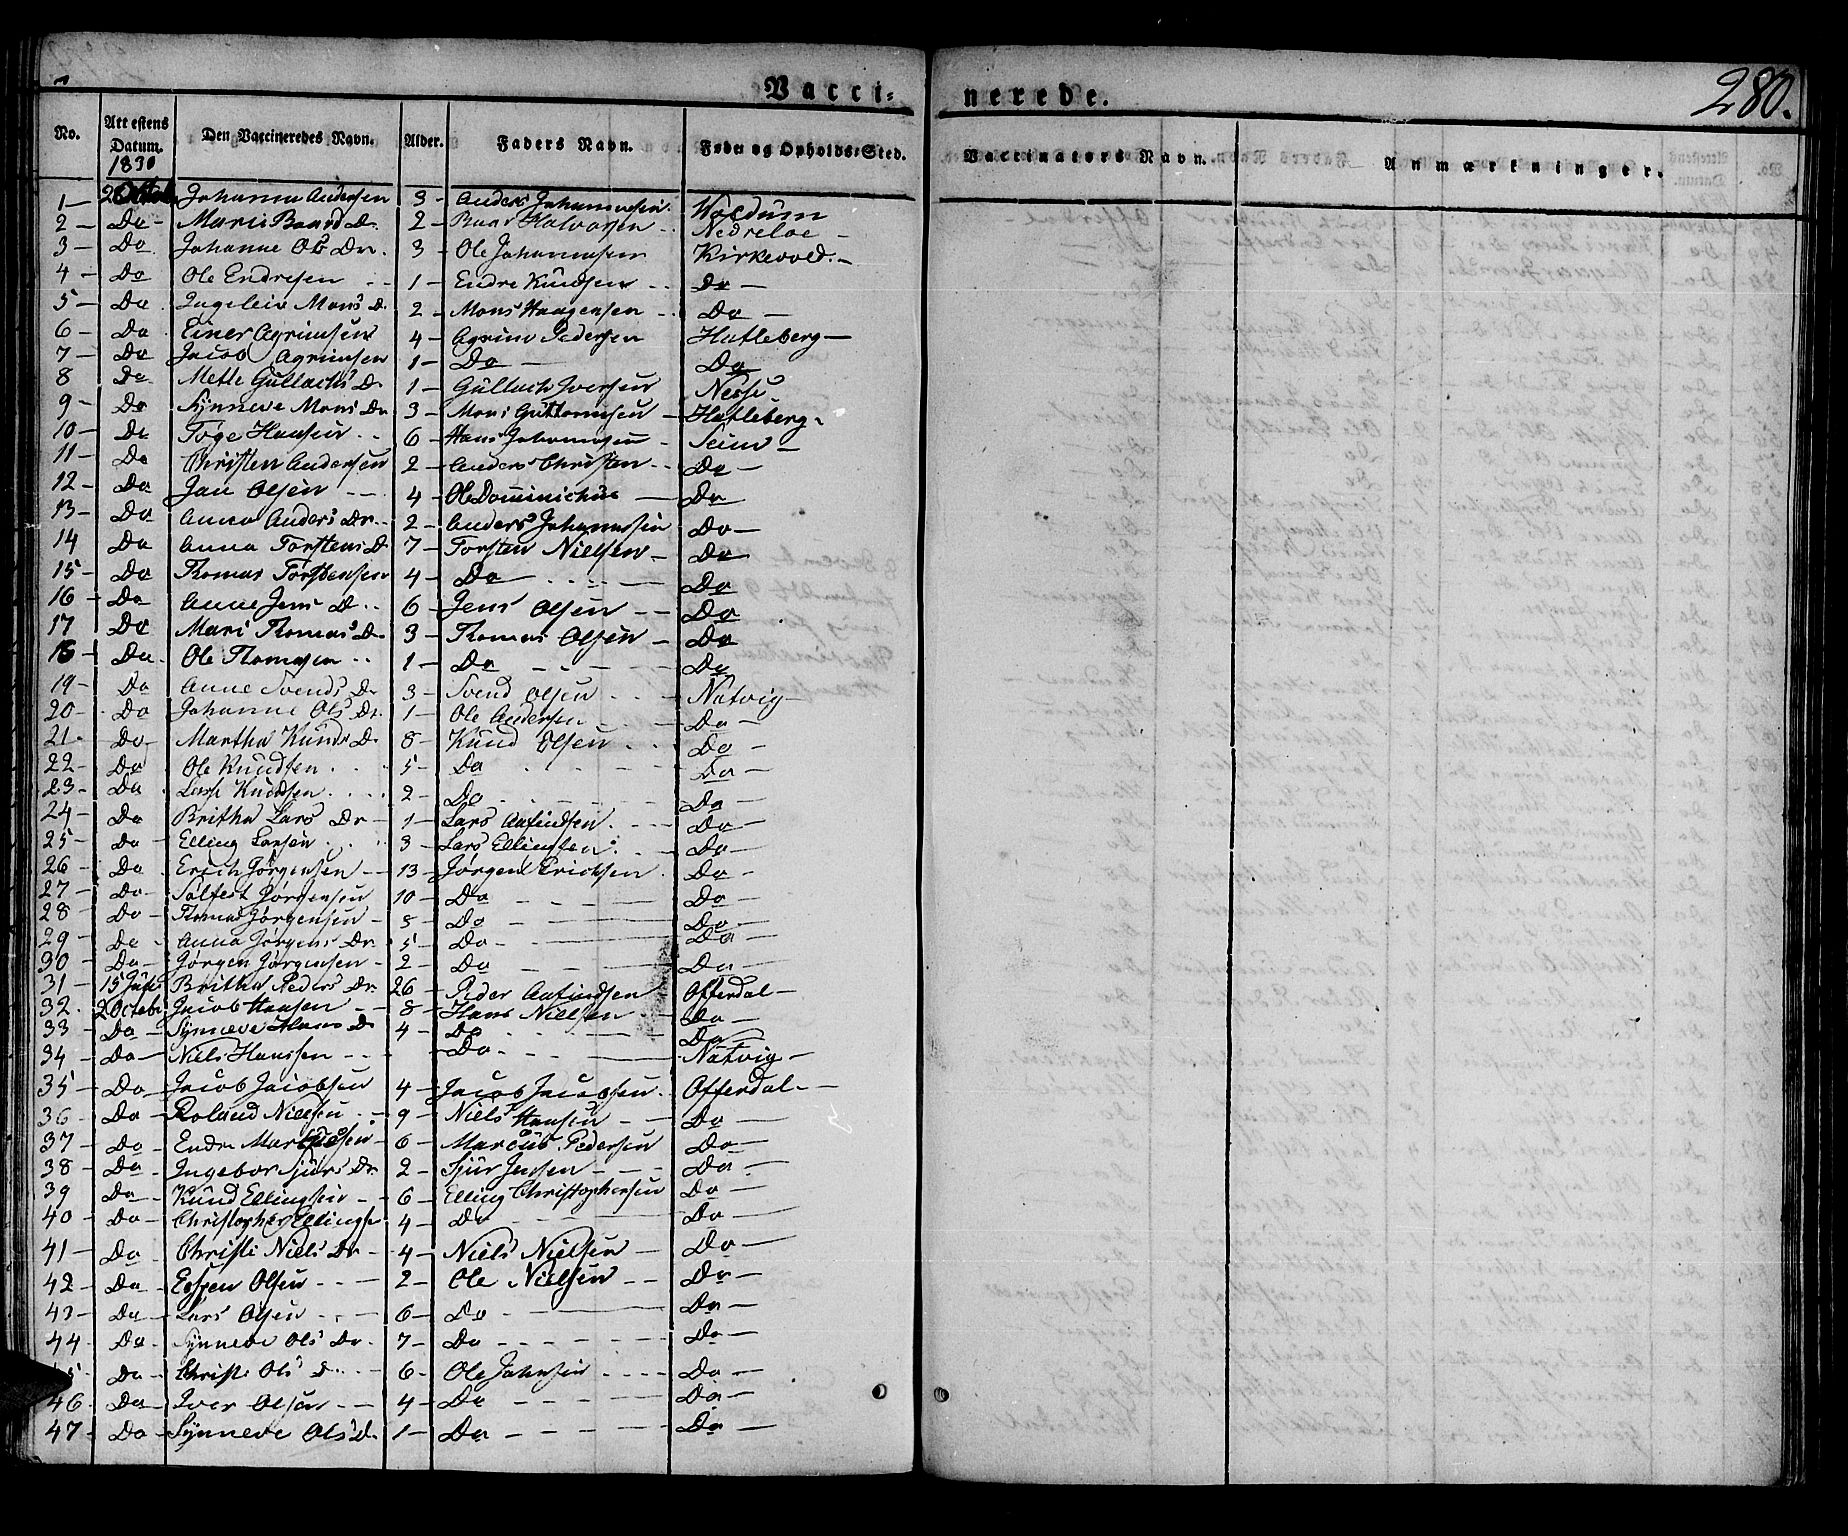 Vacci- nerede. 280.
No. Attestens Datum. Den Vaccineredes Navn. Alder. Faders Navn. Føde og Opholds-Sted. Vaccinators Navn. Anmærkninger.
1830
1 — 2 Octob. Johanna Andersen 3 - Anders Johannesen Woldum
2 — Do - Maris Baard D. 2 - Baar Halvorsen Nedreloe -
3 — Do Johanne Ols Dr. 3 - Ole Johannesen Kirkevold. -
4 - Do Ole Endresen 1 - Endre Knudsen Do -
5 - Do Ingeleiv Mons D. 2 - Mons Haagensen Do -
6 - Do Einer Agrimsen 4 - Agrim Pedersen Hatleberg —
7 - Do Jacob Agrimsen 1 - Do - Do
8 Do Mette Gullachs D. 1 - Gullach Iversen Nesse
9 - Do Synneve Mons Dr 3 - Mons Guttormsen - Hatleberg -
10 - Do Tøge Hansen 6 - Hans Johannesen - Seim -
11 - Do Christen Andersen 2 - Anders Christen Do -
12 - Do Jan Olsen 4 - Ole Dominichus — Do -
13 - Do Anna Anders Dr. 2 - Anders Johannessen Do -
14 Do Anna Torstens D 7 - Torsten Nielsen Do -
15 - Do Thomas Torstensen 4 - Do Do
16 - Do Anne Jens D. 6 Jens Olsen - - Do
17 Do Mari Thomas D. 3 - Thomas Olsen - Do
18 - Do Ole Thomasen 1 - Do Do
19 - Do Anne Svends D. 3 - Svend Olsen Natvig -
20 - Do Johanne Ols Dr. 1 - Ole Andersen Do -
21 - Do - Martha Knuds D. 8 - Knud Olsen Do -
22 - Do Ole Knudsen 5 - Do Do -
23 - Do Lars Knudsen 2 - Do Do
24 - Do Britha Lars Dr - 1 - Lars Aafindsen Do -
25 - Do - Elling Larsen 3 - Lars Ellingsen Do -
26 - Do Erich Jørgensen - - 13 - Jørgen Erichsen Do -
27 - Do - Solfest Jørgensen 10 - Do Do -
28 - Do - Thomas Jørgensen - 5 - Do Do -
29 - Do - Anna Jørgens Dr. 5 - Do Do
30 - Do - Jørgen Jørgensen - 2 - Do Do -
31 - 15 Juli Britha Peders Dr. 26 - Peder Aafindsen Offerdal -
32 - 2 Octobr Jacob Hansen - - 8 - Hans Nielsen Do -
33 - Do - Synneve Hans D 4 - Do Do -
34 - Do - Niels Hanssen - - - Do - Natvig -
35 - Do Jacob Jacobsen 4 - Jacob Jacobsen. Offerdal -
36 - Do Roland Nielsen - 9 - Niels Hansen - - Do -
37 - Do - Endre Marcussen - 6 - Marcus Pedersen Do -
38 - Do Ingebor Sjurs Dr. 2 - Sjur Jensen - - Do -
39 - Do - Knud Ellingsen - - 6 - Elling Christophersen Do -
40 - Do - Christopher Ellingse 4 - Do Do -
41 - Do Christi Niels Dr - 4 - Niels Nielsen - Do -
42 - Do - Espen Olsen - - 2 - Ole Nielsen - - Do -
43 - Do - Lars Olsen - - 6 - Do - Do -
44 - Do - Synneve Ols Dr. 7 - Do - - - Do -
Do - Christi Ols D. - 6 - Ole Johnsen Do -
46 - Do - Iver Olsen - - 4 - Do - - - Do -
47 - Do - Synneve Ols D. 1 - Do - - - Do -